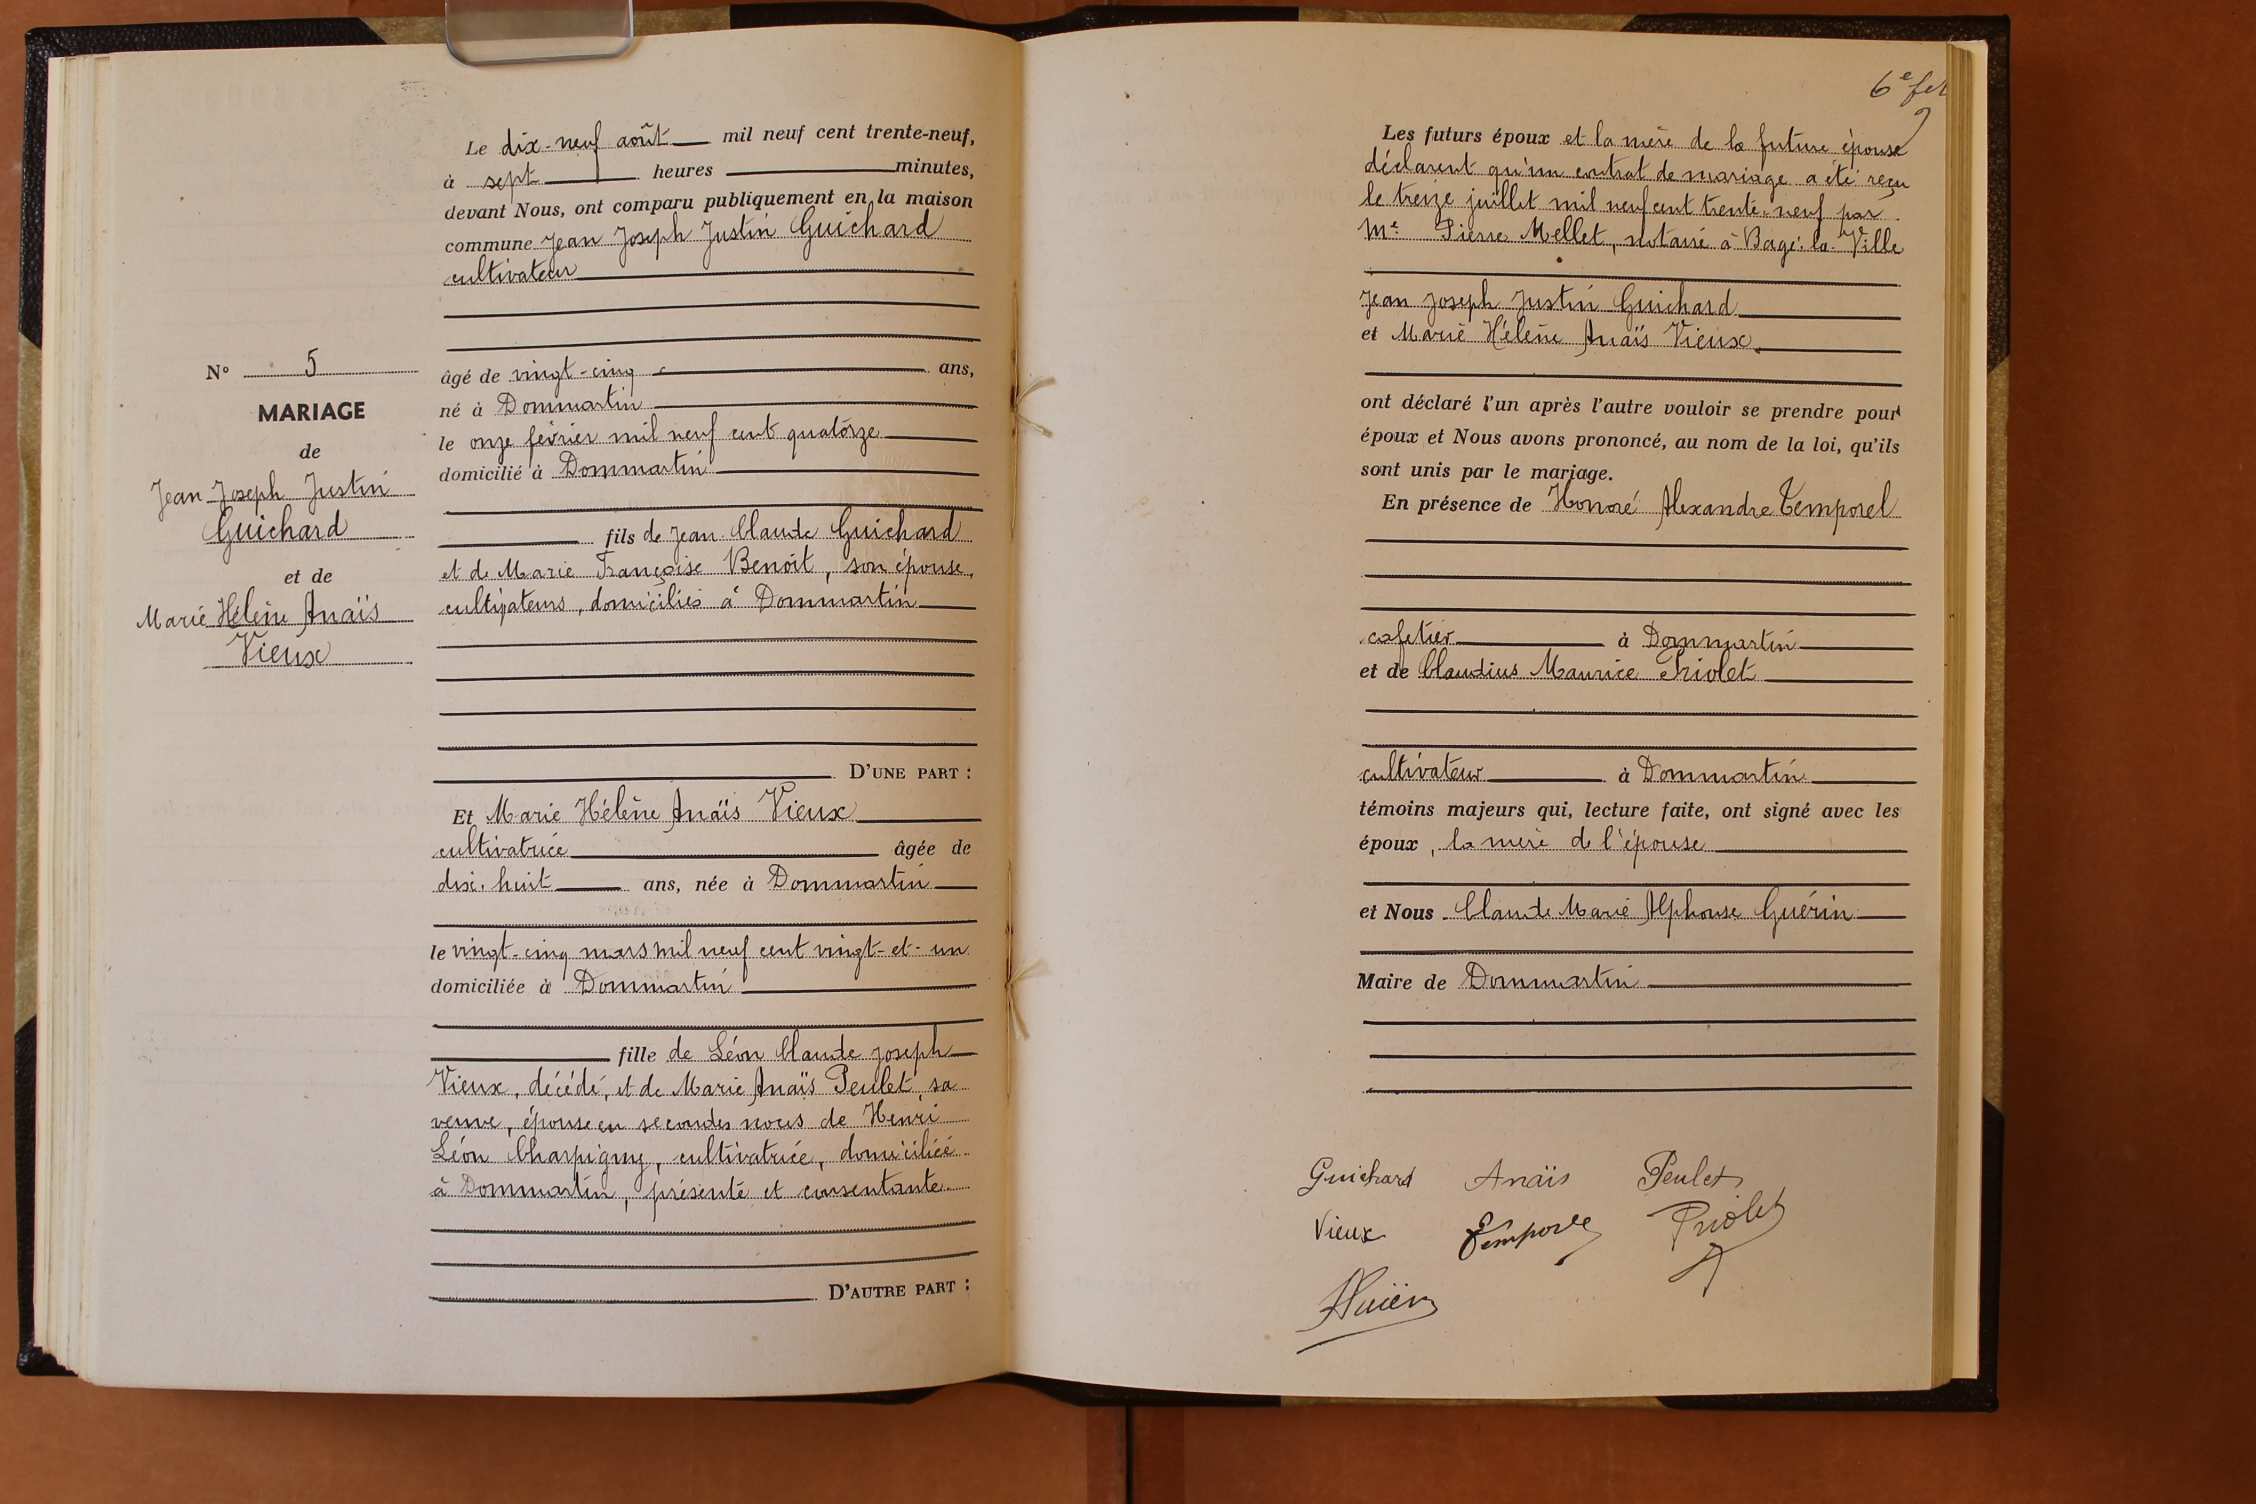 Le dix-neuf août mil neuf cent trente-neuf,
à sept heures minutes,
devant Nous, ont comparu publiquement en la maison
commune Jean Joseph Justin Guichard
cultivateur
N° 5
MARIAGE
de
Jean Joseph Justin
Guichard
et de
Marie Hélène Anaïs
Vieux
âgé de vingt-cinq ans,
né à Dommartin
le onze février mil neuf cent quatorze
domicilié à Dommartin
fils de Jean Claude Guichard
et de Marie Françoise Benoit, son épouse,
cultivateurs, domiciliés à Dommartin
D'UNE PART :
Et Marie Hélène Anaïs Vieux
cultivatrice âgée de
dix-huit ans, née à Dommartin
le vingt-cinq mars mil neuf cent vingt-et-un
domiciliée à Dommartin
fille de Léon Claude Joseph
Vieux, décédé, et de Marie Anaïs Peulet, sa
veuve, épouse en secondes noces de Henri
Léon Charpigny, cultivatrice, domiciliée
à Dommartin, présente et consentante.
D'AUTRE PART :
6e fet
Les futurs époux et la mère de la future épouse
déclarent qu'un contrat de mariage a été reçu
le treize juillet mil neuf cent trente-neuf par
Me Pierre Mellet, notaire à Bagé-la-Ville
Jean Joseph Justin Guichard
et Marie Hélène Anaïs Vieux
ont déclaré l'un après l'autre vouloir se prendre pour
époux et Nous avons prononcé, au nom de la loi, qu'ils
sont unis par le mariage.
En présence de Honoré Alexandre Temporel
cafetier à Dommartin
et de Claudius Maurice Priolet
cultivateur à Dommartin
témoins majeurs qui, lecture faite, ont signé avec les
époux, la mère de l'épouse
et Nous Claude Marie Alphonse Guérin
Maire de Dommartin
Guichard Anaïs Peulet
Vieux Temporel Priolet
AGuérin